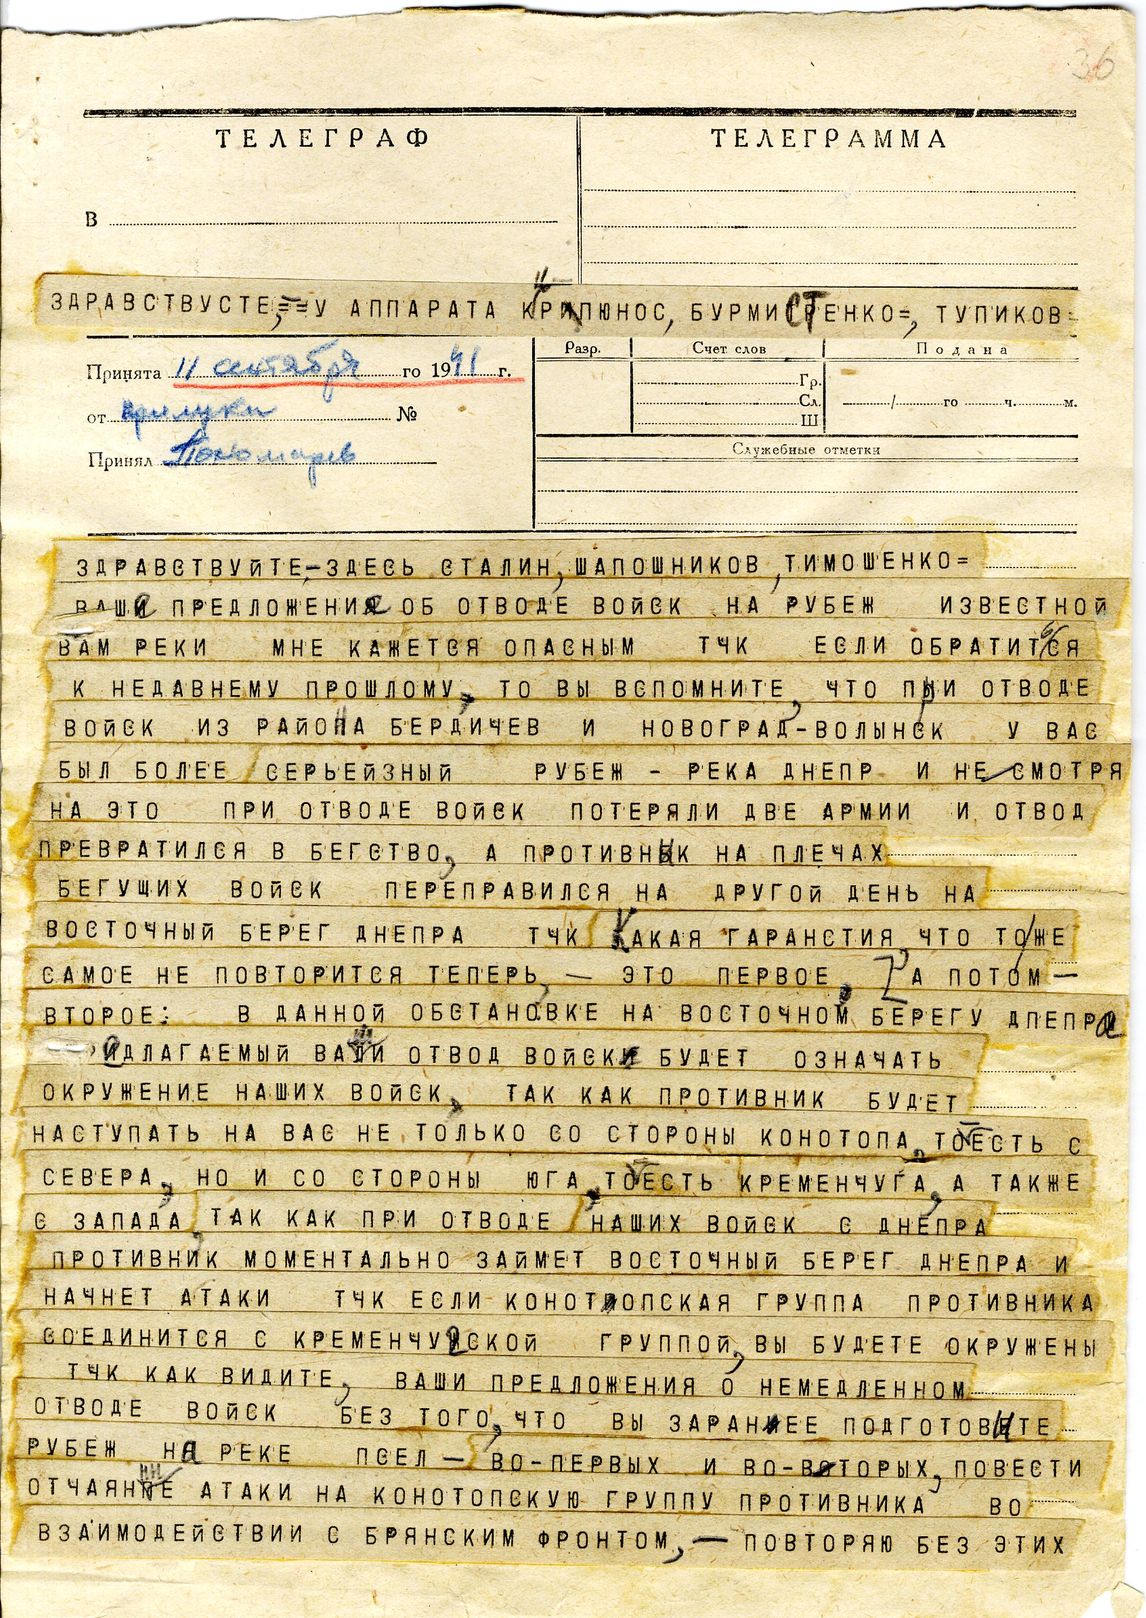 36
ТЕЛЕГРАФ
ТЕЛЕГРАММА
В
ЗДРАВСТВУСТЕ,==У АППАРАТА КИРПЮНОС, БУРМИСТЕНКО=, ТУПИКОВ=
Принята 11 сентября го 1941 г.
от Прилуки №
Принял Пономарев
Разр.
Счет слов
Подана
Гр.
Сл.
Ш
/ го ч. м.
Служебные отметки
ЗДРАВСТВУЙТЕ-ЗДЕСЬ СТАЛИН, ШАПОШНИКОВ, ТИМОШЕНКО=
ВАШЕ ПРЕДЛОЖЕНИЕ ОБ ОТВОДЕ ВОЙСК НА РУБЕЖ ИЗВЕСТНОЙ
ВАМ РЕКИ МНЕ КАЖЕТСЯ ОПАСНЫМ ТЧК ЕСЛИ ОБРАТИТЬСЯ
К НЕДАВНЕМУ ПРОШЛОМУ, ТО ВЫ ВСПОМНИТЕ, ЧТО ПРИ ОТВОДЕ
ВОЙСК ИЗ РАЙОНА БЕРДИЧЕВ И НОВОГРАД-ВОЛЫНСК У ВАС
БЫЛ БОЛЕЕ СЕРЬЕЙЗНЫЙ РУБЕЖ - РЕКА ДНЕПР И НЕСМОТРЯ
НА ЭТО ПРИ ОТВОДЕ ВОЙСК ПОТЕРЯЛИ ДВЕ АРМИИ И ОТВОД
ПРЕВРАТИЛСЯ В БЕГСТВО, А ПРОТИВНИК НА ПЛЕЧАХ
БЕГУЩИХ ВОЙСК ПЕРЕПРАВИЛСЯ НА ДРУГОЙ ДЕНЬ НА
ВОСТОЧНЫЙ БЕРЕГ ДНЕПРА ТЧК КАКАЯ ГАРАНСТИЯ, ЧТО ТО/ЖЕ
САМОЕ НЕ ПОВТОРИТСЯ ТЕПЕРЬ, — ЭТО ПЕРВОЕ, А ПОТОМ —
ВТОРОЕ: В ДАННОЙ ОБСТАНОВКЕ НА ВОСТОЧНОМ БЕРЕГУ ДПЕПРА
ЕДЛАГАЕМЫЙ ВАМИ ОТВОД ВОЙСК БУДЕТ ОЗНАЧАТЬ
ОКРУЖЕНИЕ НАШИХ ВОЙСК, ТАК КАК ПРОТИВНИК БУДЕТ
НАСТУПАТЬ НА ВАС НЕ ТОЛЬКО СО СТОРОНЫ КОНОТОПА, ТОЕСТЬ С
СЕВЕРА, НО И СО СТОРОНЫ ЮГА, ТОЕСТЬ КРЕМЕНЧУГА, А ТАКЖЕ
С ЗАПАДА, ТАК КАК ПРИ ОТВОДЕ НАШИХ ВОЙСК С ДНЕПРА
ПРОТИВНИК МОМЕНТАЛЬНО ЗАЙМЕТ ВОСТОЧНЫЙ БЕРЕГ ДНЕПРА И
НАЧНЕТ АТАКИ ТЧК ЕСЛИ КОНОТОПСКАЯ ГРУППА ПРОТИВНИКА
СОЕДИНИТСЯ С КРЕМЕНЧУГСКОЙ ГРУППОЙ, ВЫ БУДЕТЕ ОКРУЖЕНЫ
ТЧК КАК ВИДИТЕ, ВАШИ ПРЕДЛОЖЕНИЯ О НЕМЕДЛЕННОМ
ОТВОДЕ ВОЙСК БЕЗ ТОГО, ЧТО ВЫ ЗАРАНЕЕ ПОДГОТОВИТЕ
РУБЕЖ НА РЕКЕ ПСЕЛ — ВО-ПЕРВЫХ И ВО-ВТОРЫХ, ПОВЕСТИ
ОТЧАЯННЫЕ АТАКИ НА КОНОТОПСКУЮ ГРУППУ ПРОТИВНИКА ВО
ВЗАИМОДЕЙСТВИИ С БРЯНСКИМ ФРОНТОМ, — ПОВТОРЯЮ БЕЗ ЭТИХ